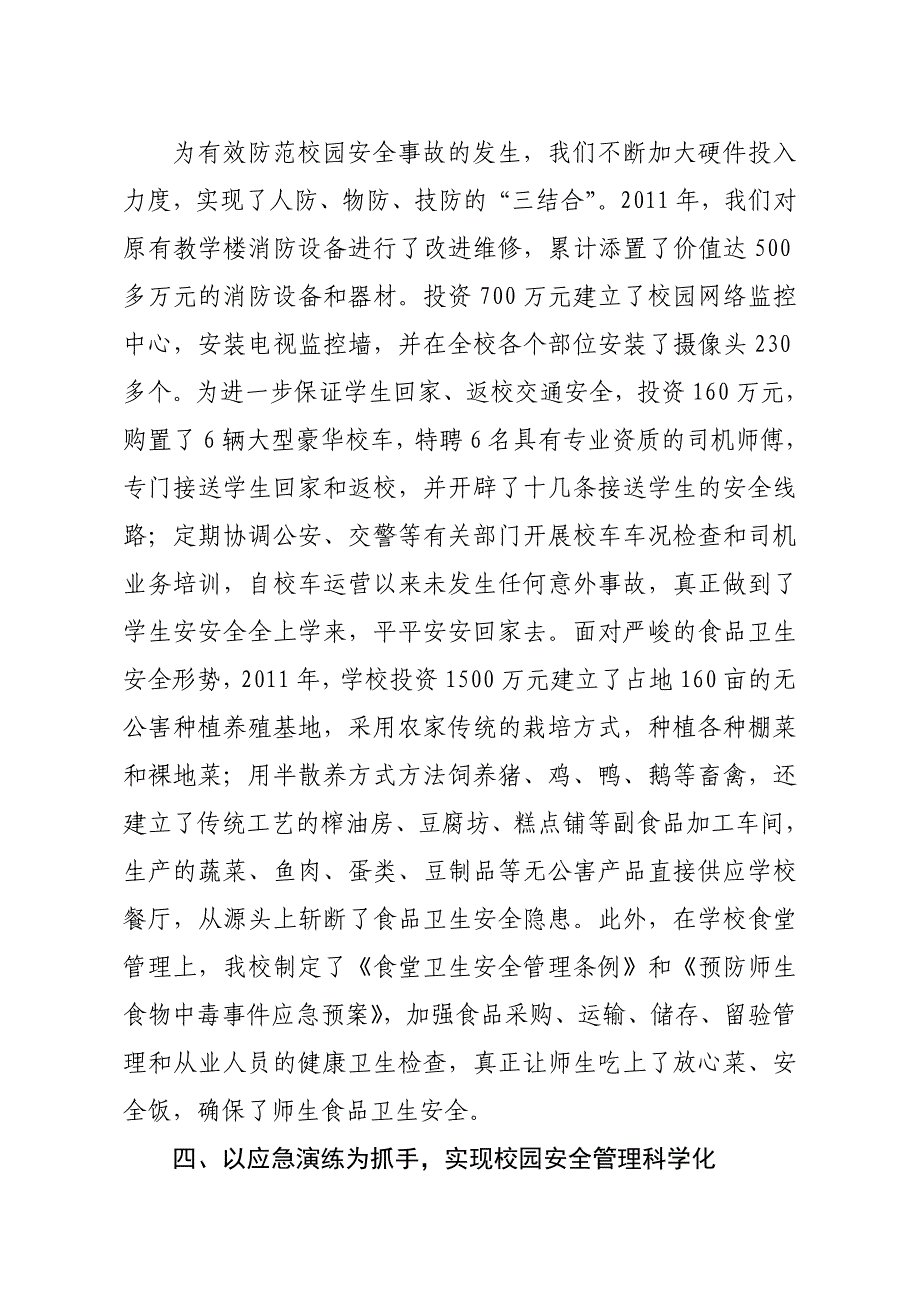 为有效防范校园安全事故的发生，我们不断加大硬件投入
力度，实现了人防、物防、技防的“三结合”。2011 年，我们对
原有教学楼消防设备进行了改进维修，累计添置了价值达 500
多万元的消防设备和器材。投资 700 万元建立了校园网络监控
中心，安装电视监控墙，并在全校各个部位安装了摄像头 230
多个。为进一步保证学生回家、返校交通安全，投资 160 万元，
购置了 6 辆大型豪华校车，特聘 6 名具有专业资质的司机师傅，
专门接送学生回家和返校，并开辟了十几条接送学生的安全线
路；定期协调公安、交警等有关部门开展校车车况检查和司机
业务培训，自校车运营以来未发生任何意外事故，真正做到了
学生安安全全上学来，平平安安回家去。面对严峻的食品卫生
安全形势，2011 年，学校投资 1500 万元建立了占地 160 亩的无
公害种植养殖基地，采用农家传统的栽培方式，种植各种棚菜
和裸地菜；用半散养方式方法饲养猪、鸡、鸭、鹅等畜禽，还
建立了传统工艺的榨油房、豆腐坊、糕点铺等副食品加工车间，
生产的蔬菜、鱼肉、蛋类、豆制品等无公害产品直接供应学校
餐厅，从源头上斩断了食品卫生安全隐患。此外，在学校食堂
管理上，我校制定了《食堂卫生安全管理条例》和《预防师生
食物中毒事件应急预案》，加强食品采购、运输、储存、留验管
理和从业人员的健康卫生检查，真正让师生吃上了放心菜、安
全饭，确保了师生食品卫生安全。
四、以应急演练为抓手，实现校园安全管理科学化